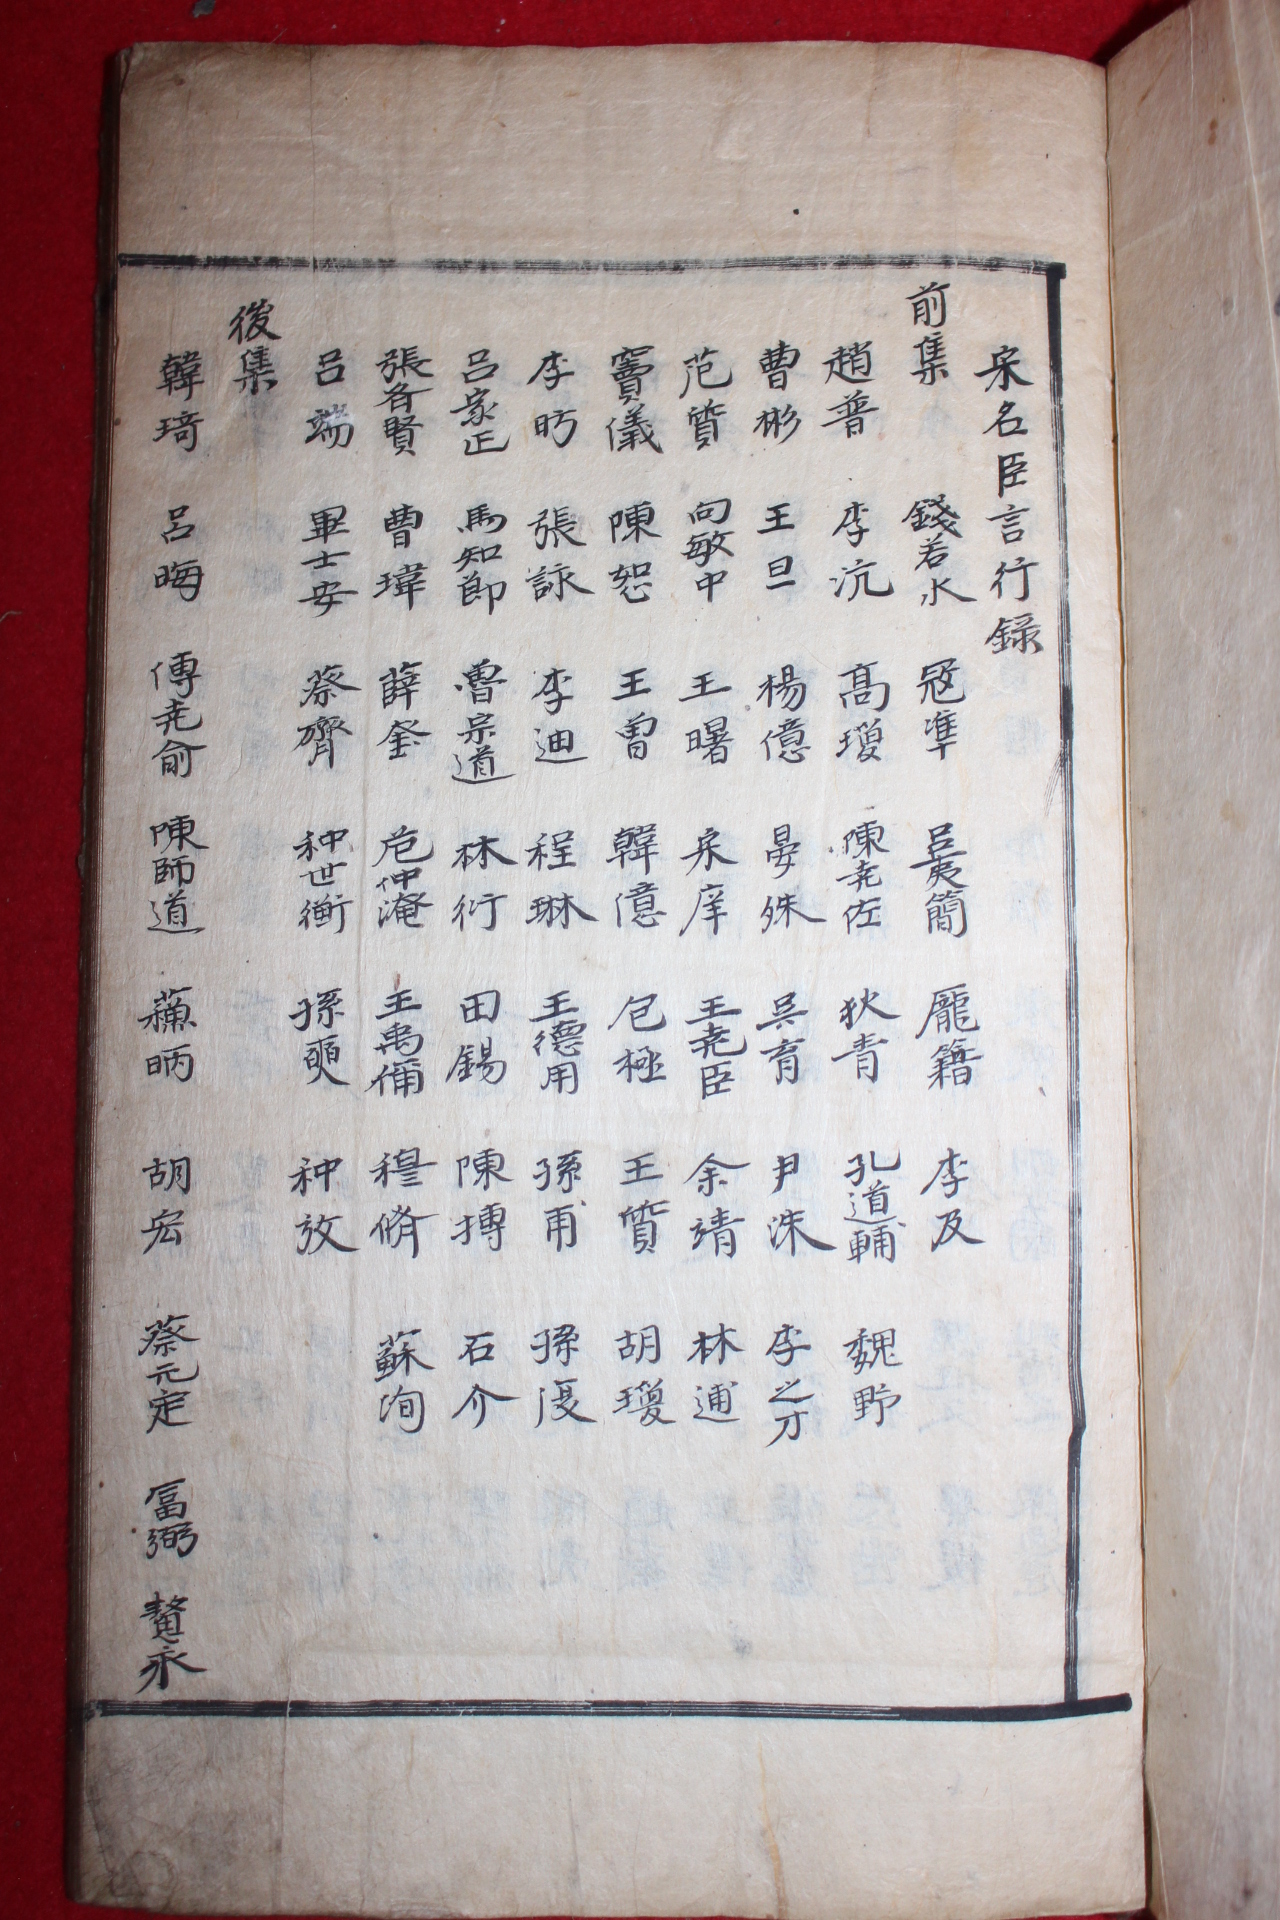 宋名臣言行録
前集 錢若水 寇準 呂夷簡 龐籍 李及
趙普 李沆 高瓊 陳尭佐 狄青 孔道輔 魏野
曹彬 王旦 楊億 晏殊 吳育 尹洙 李之才
范質 向敏中 王曙 宋庠 王尭臣 余靖 林逋
竇儀 陳恕 王曾 韓億 包極 王質 胡瓊
李昉 張詠 李迪 程琳 王德用 孫甫 孫復
呂家正 馬知節 魯宗道 林衍 田錫 陳摶 石介
張各賢 曹瑋 薛奎 范仲淹 王禹偁 穆脩 蘇洵
呂端 畢士安 蔡齊 种世衡 孫奭 种放
後集
韓琦 呂晦 傅尭俞 陳師道 蘓昞 胡宏 蔡元定 富弼 永